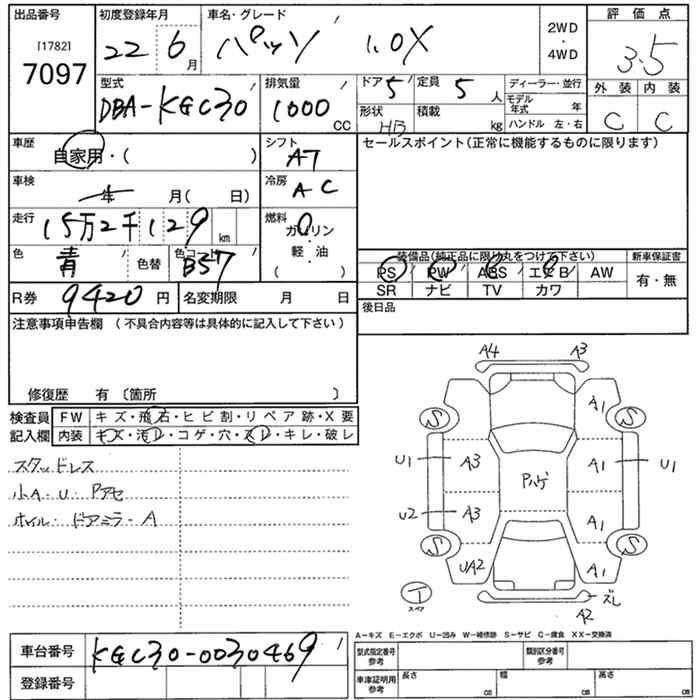 出品番号 初度登録年月 車名・グレード 2WD 評価点
[1782] 22年6月 パッソ 1.0X ・ 3.5
7097 4WD
型式 排気量 ドア 5 定員 5人 ディーラー・並行 外装 内装
DBA-KGC30 1000CC 形状 HB 積載 kg モデル年式 年 C C
ハンドル 左・右
車歴 シフト セールスポイント(正常に機能するものに限ります)
自家用・( ) AT
車検 冷房
年 月( 日) AC
走行 燃料
15万2千129km ガソリン
色 色コード 軽・油
青 色替 B57 ( )
装備品(純正品に限り丸をつけて下さい) 新車保証書
PS PW ABS エアB AW 有・無
SR ナビ TV カワ
R券 9420円 名変期限 月 日 後日品
注意事項申告欄 (不具合内容等は具体的に記入して下さい)
修復歴 有〔箇所 〕
検査員 FW キズ・飛石・ヒビ割・リペア跡・X要
記入欄 内装 キズ・汚レ・コゲ・穴・スレ・キレ・破レ
スタッドレス
小A・U・Pアセ
ホイル・ドアミラーA
A4 A3
S A1 S
U1 A3 A1 U1
Pハゲ
U2 A3 A1
S UA2 A1 S
T スペア ズレ
A2
A−キズ E−エクボ U−凹み W−補修跡 S−サビ C−腐食 XX−交換済
車台番号 KGC30-0030469
登録番号
型式指定番号 参考 類別区分番号 参考
車庫証明用 参考 長さ cm 幅 cm 高さ cm